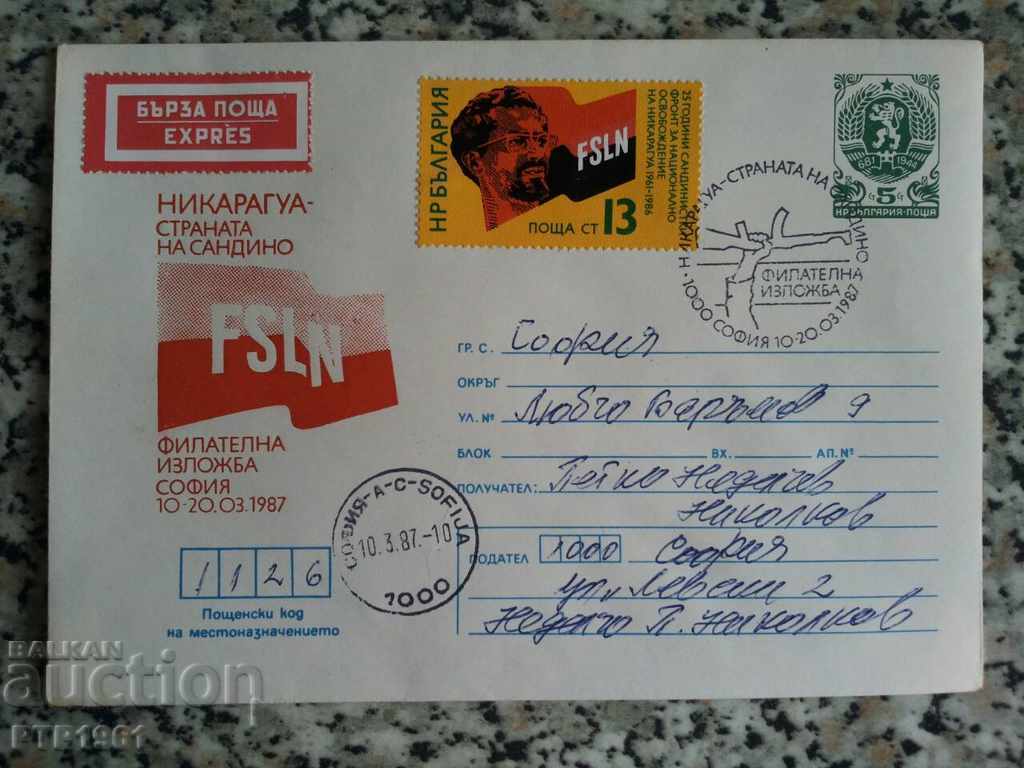 БЪРЗА ПОЩА
EXPRÈS
НИКАРАГУА-
СТРАНАТА
НА САНДИНО
FSLN
ФИЛАТЕЛНА
ИЗЛОЖБА
СОФИЯ
10-20.03.1987
НР БЪЛГАРИЯ
25 ГОДИНИ САНДИНИСТКИ
ФРОНТ ЗА НАЦИОНАЛНО
ОСВОБОЖДЕНИЕ
НА НИКАРАГУА 1961-1986
FSLN
ПОЩА СТ 13
681 1944
5
НР БЪЛГАРИЯ-ПОЩА
НИКАРАГУА-СТРАНАТА НА САНДИНО
ФИЛАТЕЛНА
ИЗЛОЖБА
1000 СОФИЯ 10-20.03.1987
ГР. С. София
ОКРЪГ
УЛ. № Любчо 9
БЛОК ВХ. АП. №
ПОЛУЧАТЕЛ: Петко Неделчов
Николков
ПОДАТЕЛ 1000 София
ул. Левски 2
Неделчо П. Николков
СОФИЯ-А-С-SOFIJA
10.3.87.-10
1000
1126
Пощенски код
на местоназначението
BALKAN
auction
PTP1961